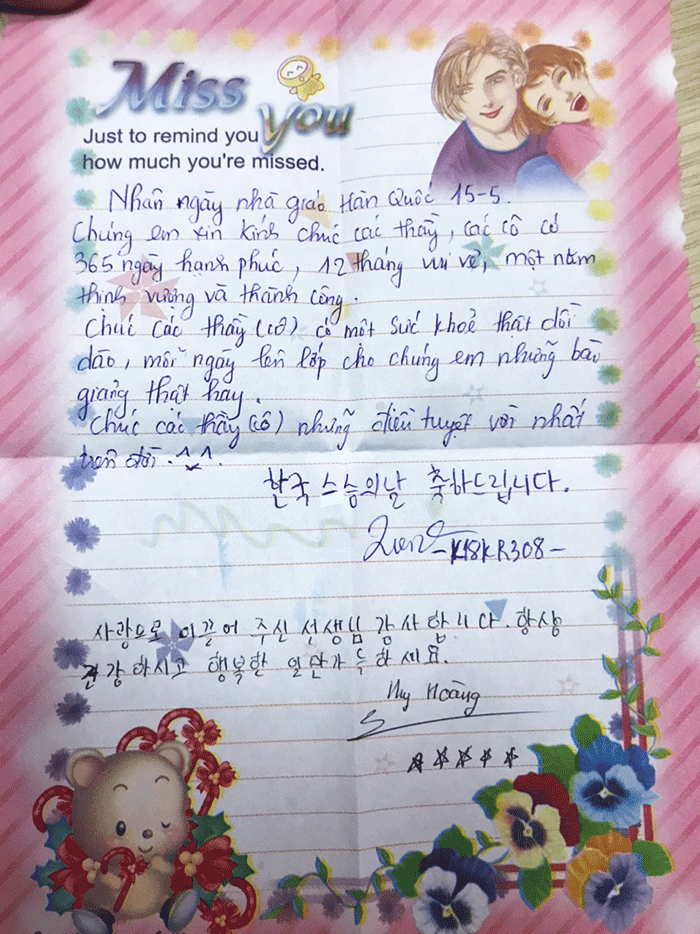 Miss You
Just to remind you
how much you're missed.
Nhân ngày nhà giáo Hàn Quốc 15-5.
Chúng em xin kính chúc các thầy, các cô có
365 ngày hạnh phúc, 12 tháng vui vẻ, một năm
thịnh vượng và thành công.
Chúc các thầy (cô) có một sức khoẻ thật dồi
dào, mỗi ngày lên lớp cho chúng em những bài
giảng thật hay.
Chúc các thầy (cô) những điều tuyệt vời nhất
trên đời. ^^.
한국 스승의날 축하드립니다.
-K18KR308-
사랑으로 이끌어 주신 선생님 감사합니다. 항상
건강하시고 행복한 일만 가득하세요.
My Hoàng